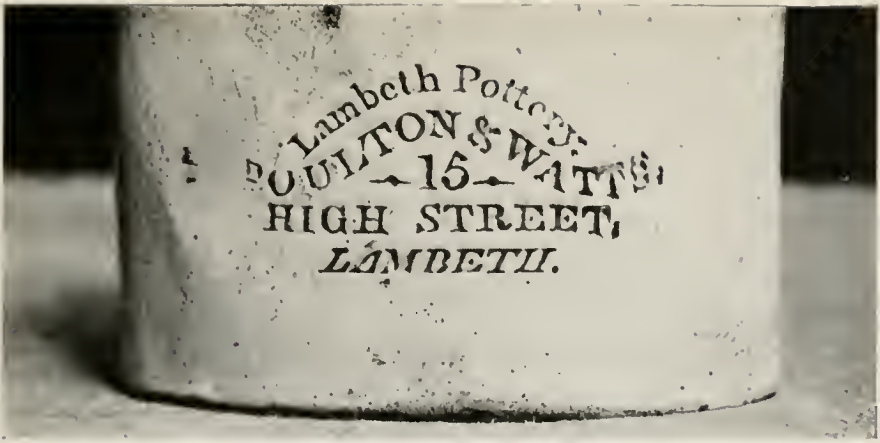 Lambeth Pottery.
DOULTON & WATTS
15
HIGH STREET,
LAMBETH.